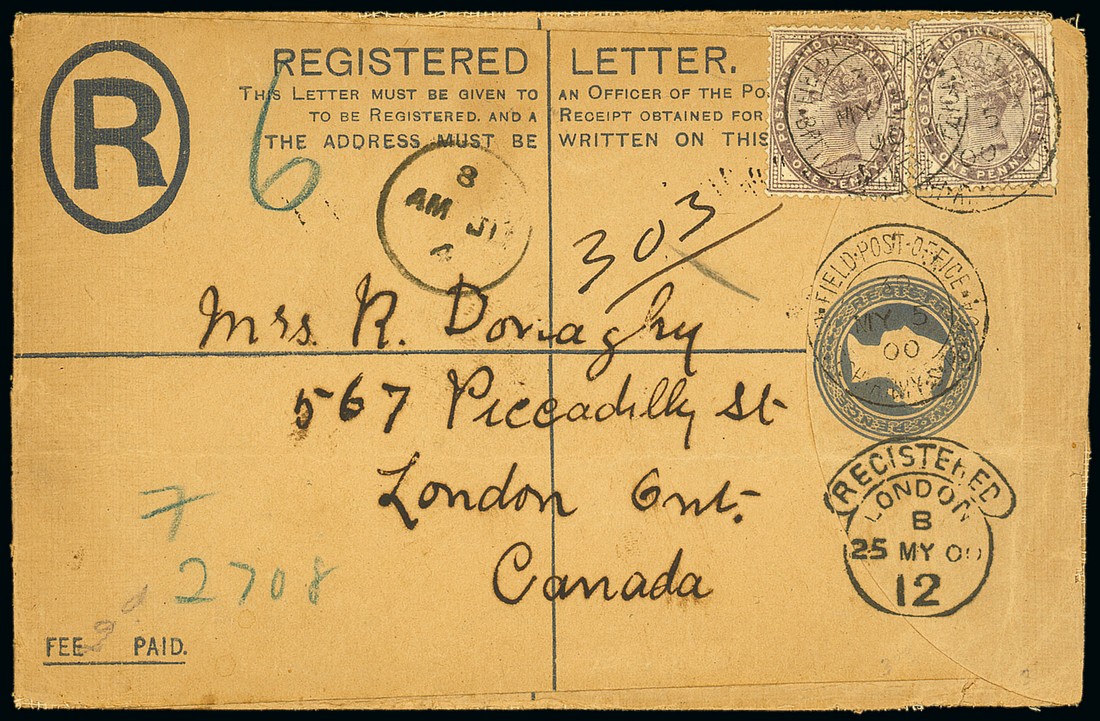 R
REGISTERED LETTER.
THIS LETTER MUST BE GIVEN TO AN OFFICER OF THE
TO BE REGISTERED, AND A RECEIPT OBTAINED FOR
THE ADDRESS MUST BE WRITTEN ON THIS
6
8
AM
303/
POSTAGE AND INLAND REVENUE
ONE PENNY
POSTAGE AND INLAND REVENUE
ONE PENNY
FIELD·POST·OFFICE
MY 5
00
ARMY
Mrs. R. Donaghy
567 Piccadilly St
London Ont.
Canada
REGISTERED
LONDON
B
25 MY 00
12
7
2708
FEE PAID.